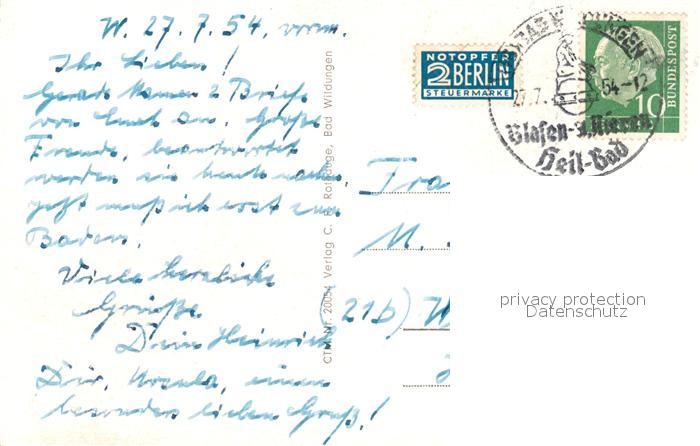 W. 27.7.54, vorm.
Ihr Lieben!
Gerade kamen 2 Briefe
von Euch an. Große
Freude, beantwortet
werden sie heute nachm.
jetzt muß ich erst zum
Baden.
Viele herzliche
Grüße
Dein Heinrich
Dir, Ursula, einen
besonders lieben Gruß!
CTM Nr. 20054 Verlag C. Rothauge, Bad Wildungen
NOTOPFER
2 BERLIN
STEUERMARKE
BAD WILDUNGEN
27.7.54-12
Blasen-u.Nieren
Heil-Bad
10
BUNDESPOST
Fra
M.
(21b) W
privacy protection
Datenschutz